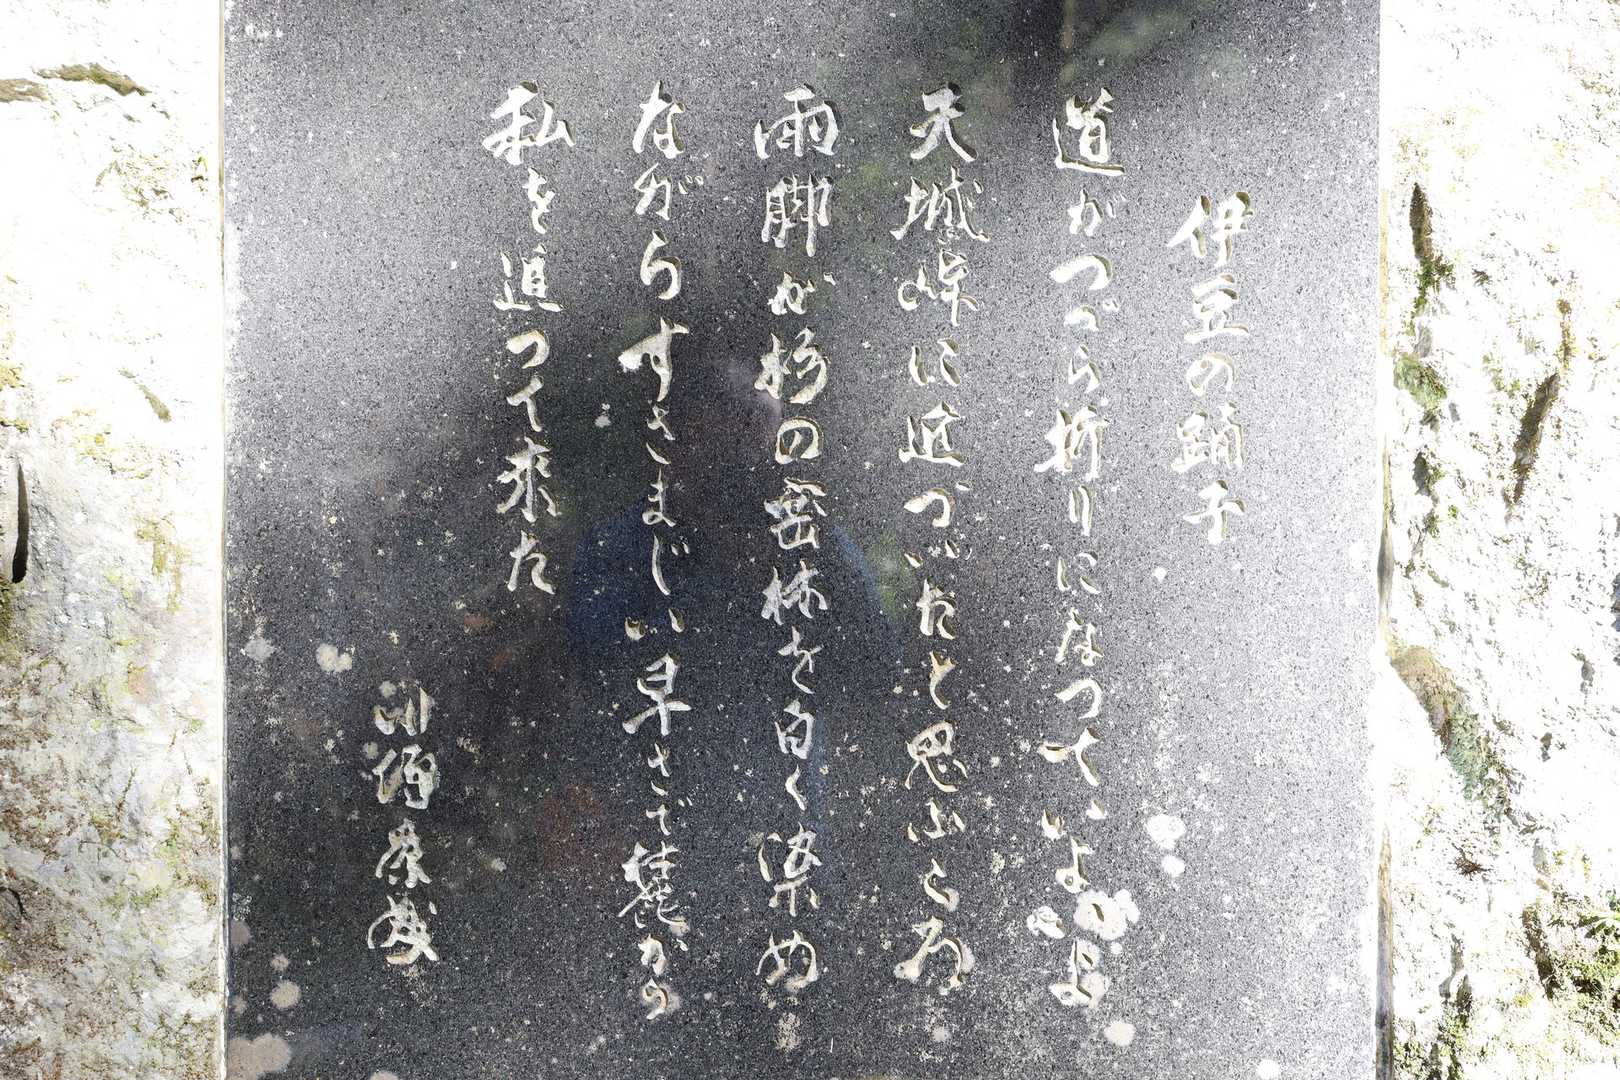 伊豆の踊子
道がつづら折りになつて、いよいよ
天城峠に近づいたと思ふころ
雨脚が杉の密林を白く染め
ながらすさまじい早さで麓から
私を追つて来た
川端康成